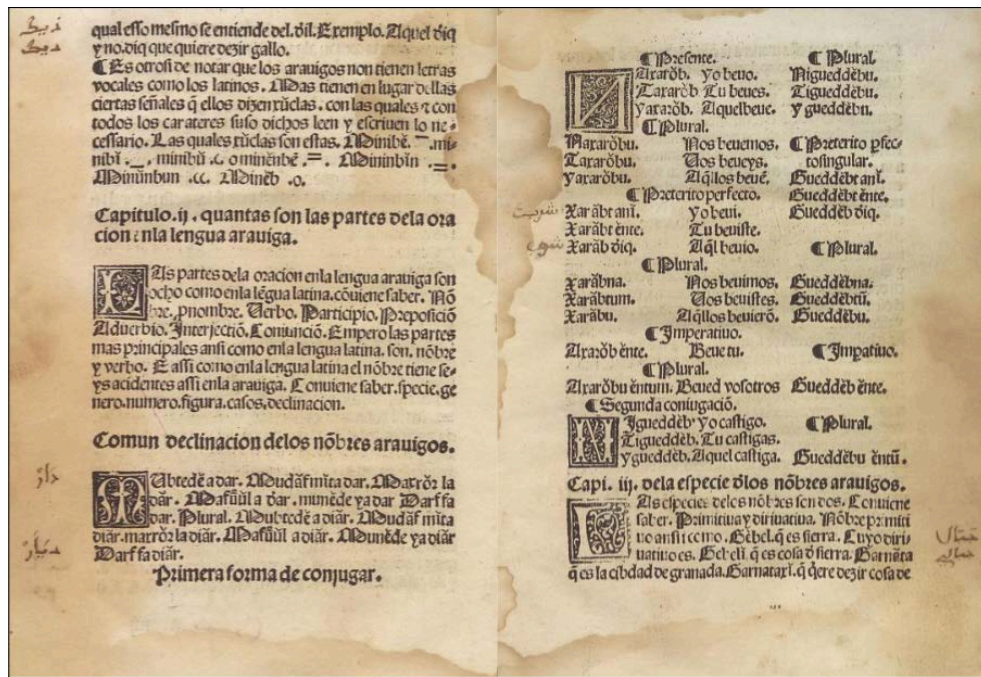 qual esso mesmo se entiende del. d̃il. Exemplo. Aquel d̃iq
y no. diq que quiere dezir gallo.
¶ Es otrosi de notar que los arauigos non tienen letras
vocales como los latinos. Mas tienen en lugar dellas
ciertas señales q̃ ellos dizen xũclas. con las quales ⁊ con
todos los carateres suso dichos leen y escriuen lo ne-
cessario. Las quales xũclas son estas. Minibẽ. — . mi-
nibĩ . _ . minibũ . c. o minẽnbẽ . = . Mininbĩn . = .
Minũnbun . cc. Minẽb . o.
Capitulo. ij. quantas son las partes dela ora
cion enla lengua arauiga.
LAs partes dela oracion enla lengua arauiga son
ocho como enla lẽgua latina. cõuiene saber. Nõ
bre. pnombre. Uerbo. Participio. Preposiciõ
Aduerbio. Interjectiõ. Coniunciõ. Empero las partes
mas principales ansi como enla lengua latina. son. nõbre
y verbo. E assi como enla lengua latina el nõbre tiene se-
ys acidentes assi enla arauiga. Conuiene saber. specie. ge
nero. numero. figura. casos. declinacion.
Comun declinacion delos nõbres arauigos.
MUbtedẽ a dar. Mudãf mĩta dar. Maxrõr la
dãr. Mafũũl a dar. munẽde ya dar Darf fa
dar. Plural. Mubtedẽ a diãr. Mudãf mĩta
diãr. maxrõr la diãr. Mafũũl a diãr. Munẽde ya diãr
Darf fa diãr.
Primera forma de conjugar.
ديك
ديك
دار
ديار
¶ Presente.
NAxarõb. yo beuo.
Taxarõb Tu beues.
yaxarõb. Aquel beue.
¶ Plural.
Naxarõbu. Nos beuemos.
Taxarõbu. Uos beueys.
yaxarõbu. Aq̃llos beuẽ.
¶ Preterito perfecto.
Xarãbt anĩ. yo beui.
Xarãbt ẽnte. Tu beuiste.
Xarãb d̃iq. Aq̃l beuio.
¶ Plural.
Xarãbna. Nos beuimos.
Xarãbtum. Uos beuistes.
Xarãbu. Aq̃llos beuierõ.
¶ Imperatiuo.
Axarõb ẽnte. Beue tu.
¶ Plural.
Axarõbu ẽntum. Beued vosotros
¶ Segunda coniugaciõ.
NIgueddẽb yo castigo.
Tigueddẽb. Tu castigas.
ygueddẽb. Aquel castiga.
¶ Plural.
Nigueddẽbu.
Tigueddẽbu.
ygueddẽbu.
¶ Preterito pfec-
to singular.
Gueddẽbt anĩ.
Gueddẽbt ẽnte.
Gueddẽb d̃iq.
¶ Plural.
Gueddẽbna.
Gueddẽbtũ.
Gueddẽbu.
¶ Impatiuo.
Gueddẽb ẽnte.
¶ Plural.
Gueddẽbu ẽntũ.
Capi. iij. dela especie d̃los nõbres arauigos.
LAs especies delos nõbres son dos. Conuiene
saber. Primitiua y diriuatiua. Nõbre primiti
uo ansi como. Gẽbel. q̃ es sierra. Cuyo diri-
uatiuo es. Gebelĩ. q̃ es cosa d̃ sierra. Garnẽta
q̃ es la cibdad de granada. Garnataxĩ. q̃ q̃ere dezir cosa de
شربت